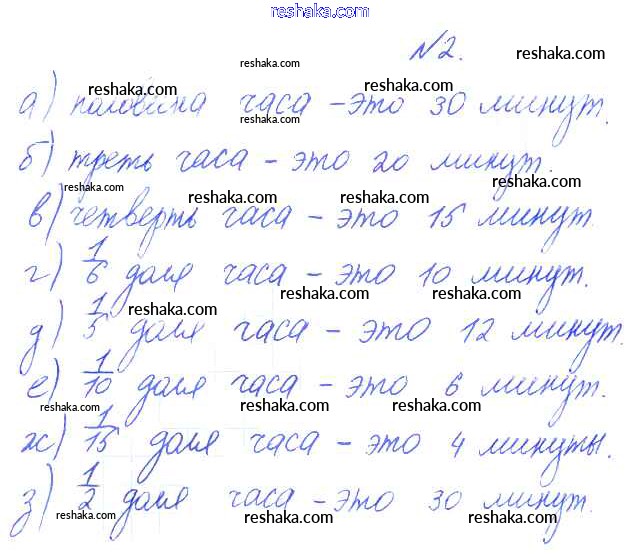 reshaka.com
№2.
reshaka.com
reshaka.com
reshaka.com reshaka.com
а) половина часа – это 30 минут.
reshaka.com
б) треть часа – это 20 минут.
reshaka.com reshaka.com reshaka.com reshaka.com
в) четверть часа – это 15 минут.
г) 1/6 доля часа – это 10 минут.
reshaka.com reshaka.com reshaka.com
д) 1/5 доля часа – это 12 минут.
е) 1/10 доля часа – это 6 минут.
reshaka.com reshaka.com reshaka.com reshaka.com
ж) 1/15 доля часа – это 4 минуты.
з) 1/2 доля часа – это 30 минут.
reshaka.com reshaka.com reshaka.com